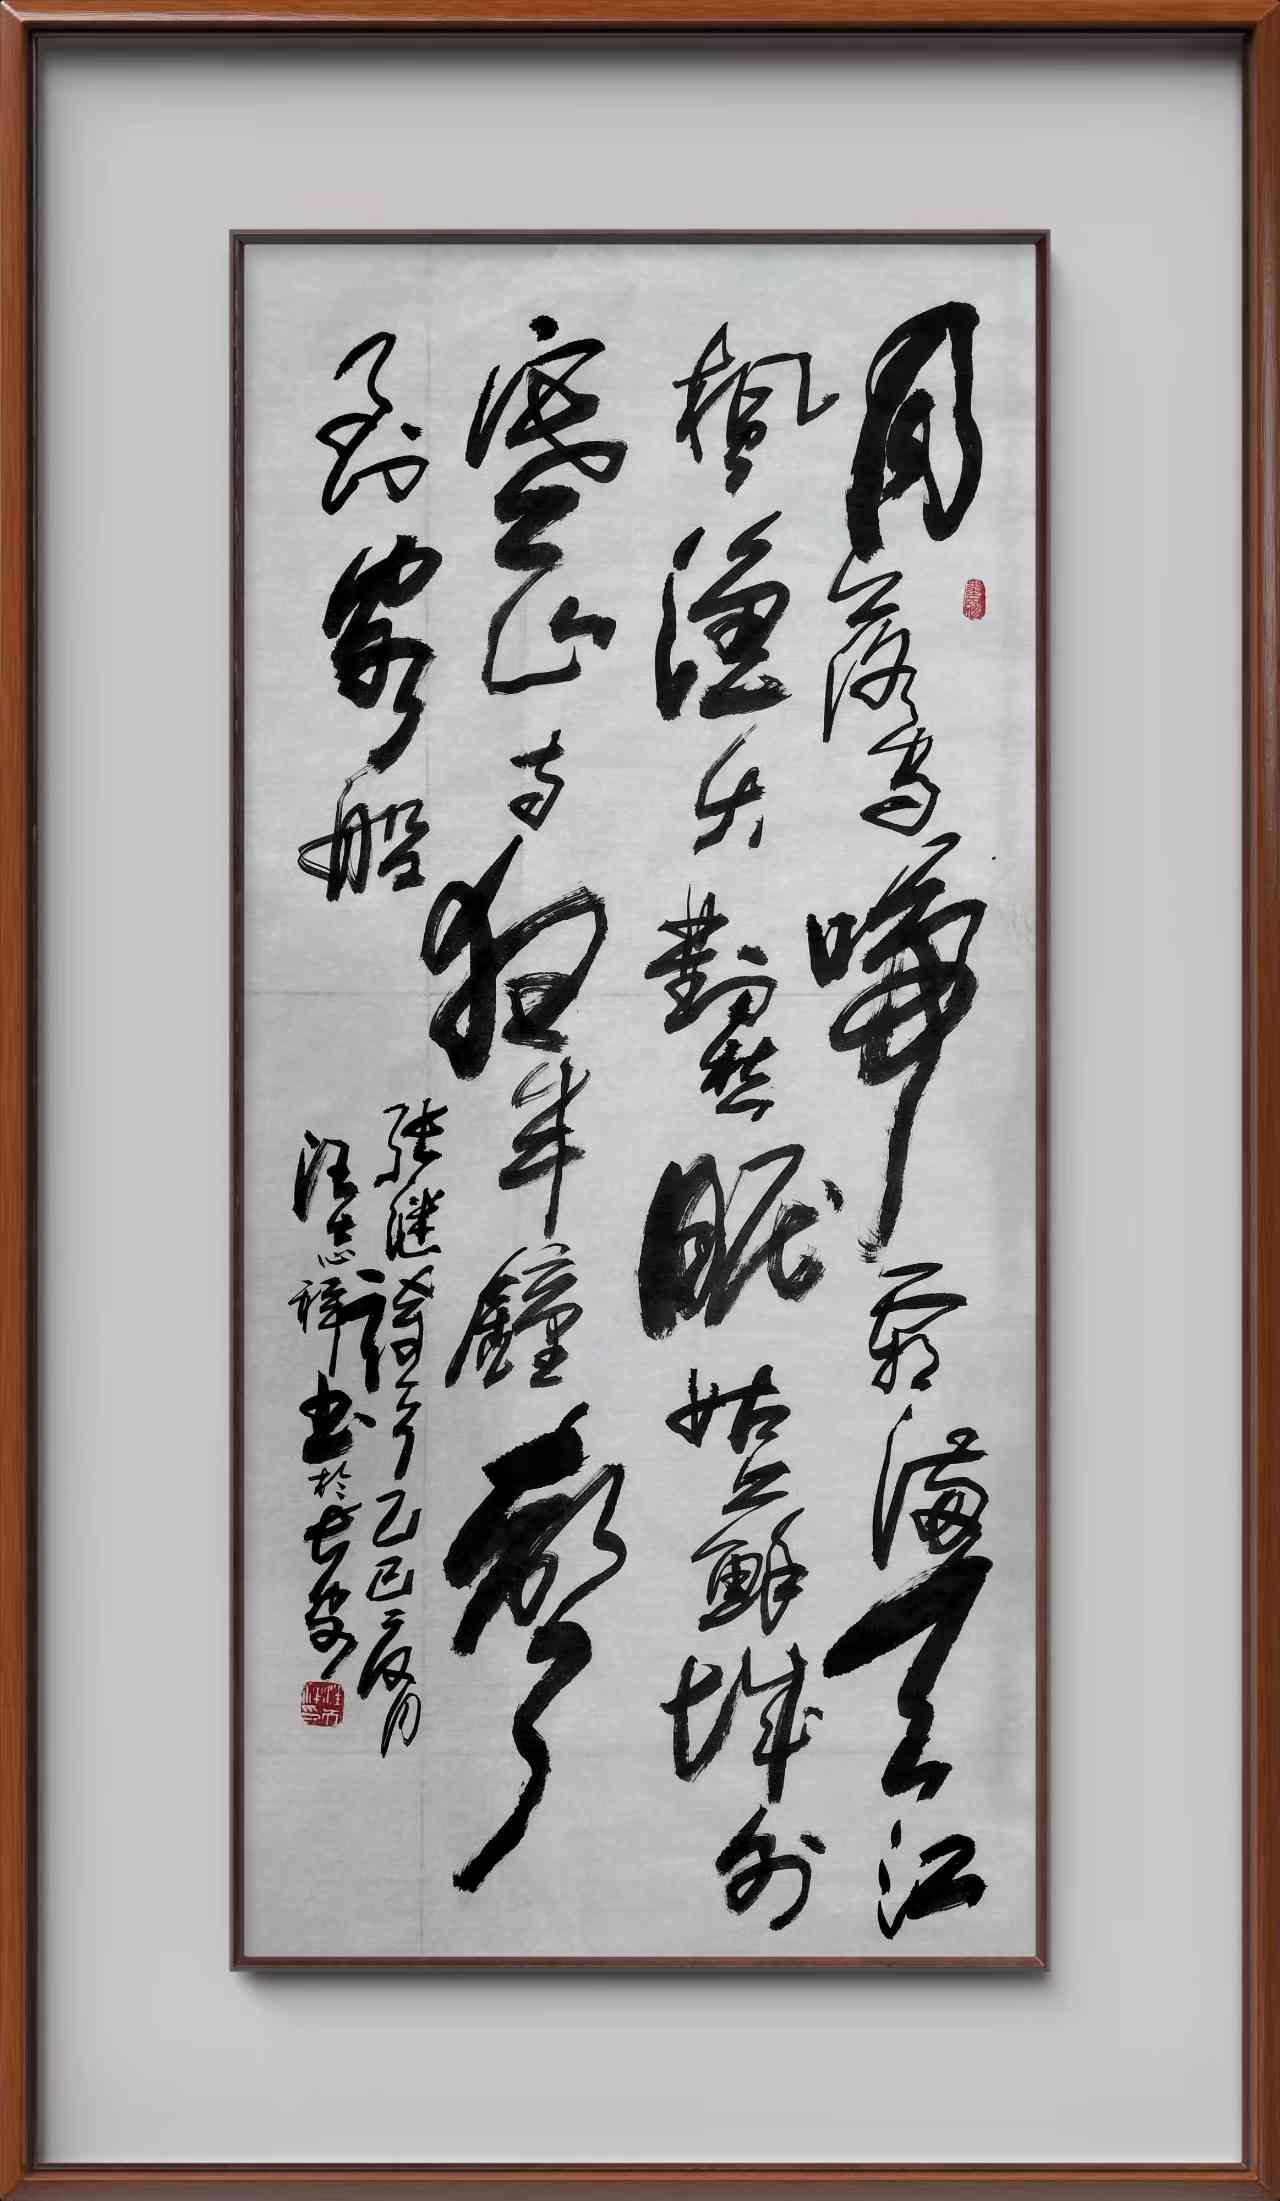 月落烏啼霜滿天江
楓漁火對愁眠姑蘇城外
寒山寺夜半鐘聲
到客船
張繼詩一首乙巳夏月
汪志祥書於長安